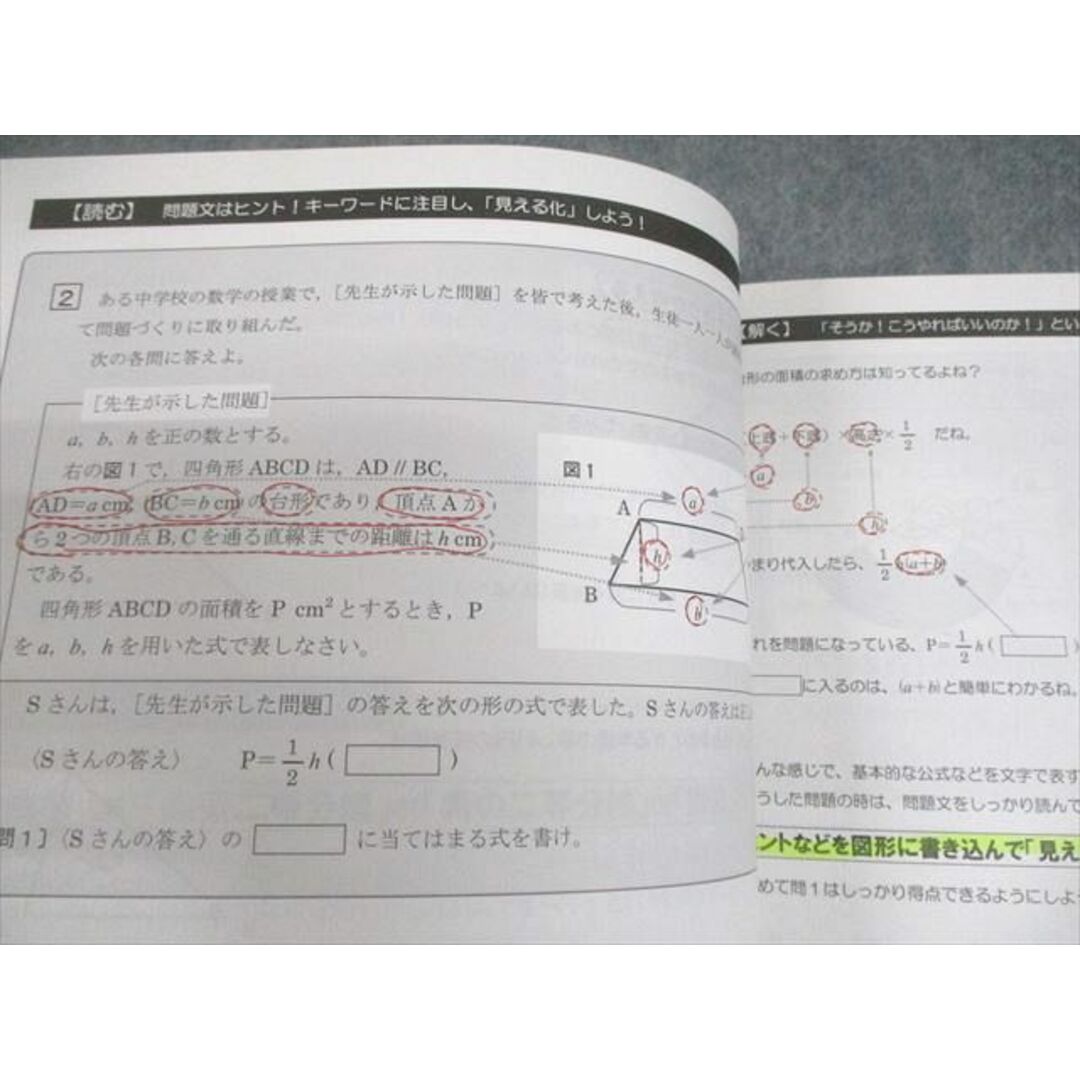 【読む】 問題文はヒント！キーワードに注目し、「見える化」しよう！
2 ある中学校の数学の授業で，［先生が示した問題］を皆で考えた後，生徒一人一人が
て問題づくりに取り組んだ。
次の各問に答えよ。
［先生が示した問題］
a，b，hを正の数とする。
右の図1で，四角形ABCDは，AD // BC，
AD＝a cm，BC＝b cmの台形であり，頂点Aか
ら2つの頂点B, Cを通る直線までの距離はh cm
である。
四角形ABCDの面積をP cm²とするとき，P
をa，b，hを用いた式で表しなさい。
図1
A
a
h
B
b
Sさんは，［先生が示した問題］の答えを次の形の式で表した。Sさんの答えは
〈Sさんの答え〉 P=1/2 h( )
問1］〈Sさんの答え〉の に当てはまる式を書け。
【解く】 「そうか！こうやればいいのか！」とい
形の面積の求め方は知ってるよね？
(上底＋下底)×高さ×1/2 だね。
a
b
h
まり代入したら、1/2 h(a+b)
れを問題になっている、P=1/2 h( )
に入るのは、(a+b)と簡単にわかるね。
んな感じで、基本的な公式などを文字で表す
うした問題の時は、問題文をしっかり読んで
ントなどを図形に書き込んで「見え
めて問1はしっかり得点できるようにしよ